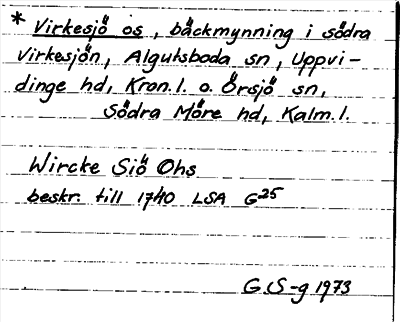 * Virkesjö os, bäckmynning i södra
Virkesjön, Algutsboda sn, Uppvi-
dinge hd, Kron.l. o. Örsjö sn,
Södra Möre hd, Kalm.l.
Wircke Siö Ohs
beskr. till 1740 LSA G25
G.S-g 1973